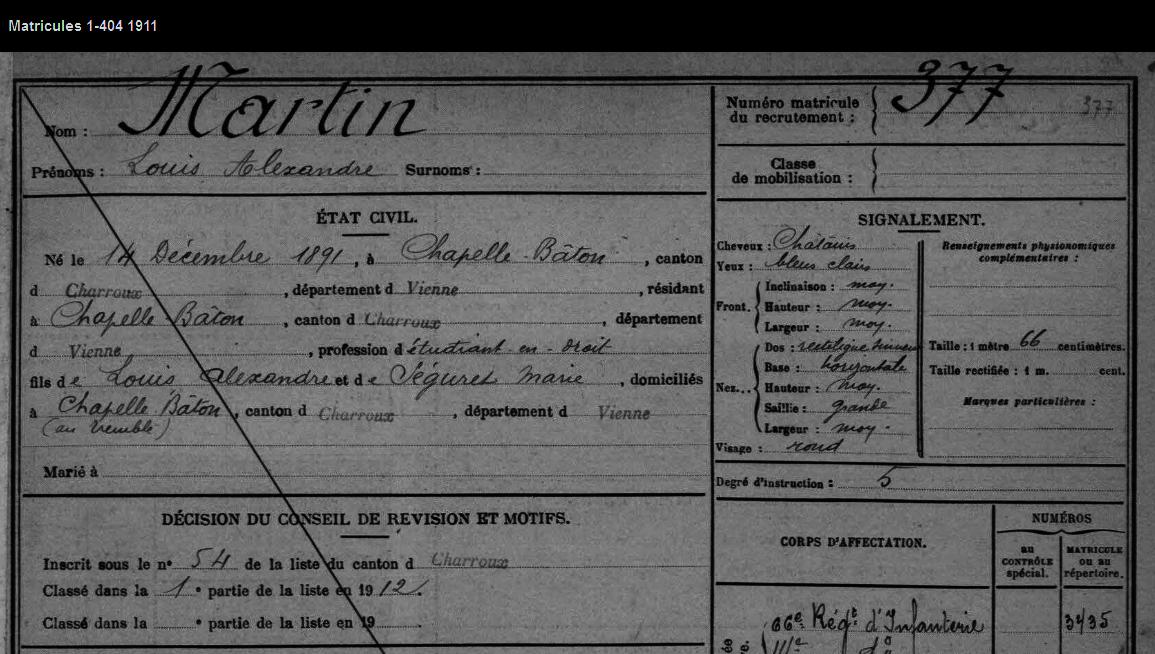 Matricules 1-404 1911
Nom : Martin
Prénoms : Louis Alexandre Surnoms :
Numéro matricule du recrutement : 377 377
Classe de mobilisation :
ÉTAT CIVIL.
Né le 14 Décembre 1891, à Chapelle-Bâton, canton
d Charroux, département d Vienne, résidant
à Chapelle Bâton, canton d Charroux, département
d Vienne, profession d étudiant-en-droit
fils de Louis Alexandre et de Séguret Marie, domiciliés
à Chapelle Bâton, canton d Charroux, département d Vienne
(au Tremble)
Marié à
SIGNALEMENT.
Cheveux : Châtains
Yeux : bleus clairs
Front. Inclinaison : moy.
Hauteur : moy.
Largeur : moy.
Nez... Dos : rectiligne
Base : horizontale
Hauteur : moy.
Saillie : grande
Largeur : moy.
Visage : rond
Renseignements physionomiques
complémentaires :
Taille : 1 mètre 66 centimètres.
Taille rectifiée : 1 m. cent.
Marques particulières :
Degré d'instruction : 5
DÉCISION DU CONSEIL DE REVISION ET MOTIFS.
Inscrit sous le nº 54 de la liste du canton d Charroux
Classé dans la 1 e partie de la liste en 1912.
Classé dans la e partie de la liste en 19 .
CORPS D'AFFECTATION.
NUMÉROS
au
CONTRÔLE
spécial.
MATRICULE
ou au
répertoire.
66e Régt d'Infanterie 3435
111e do